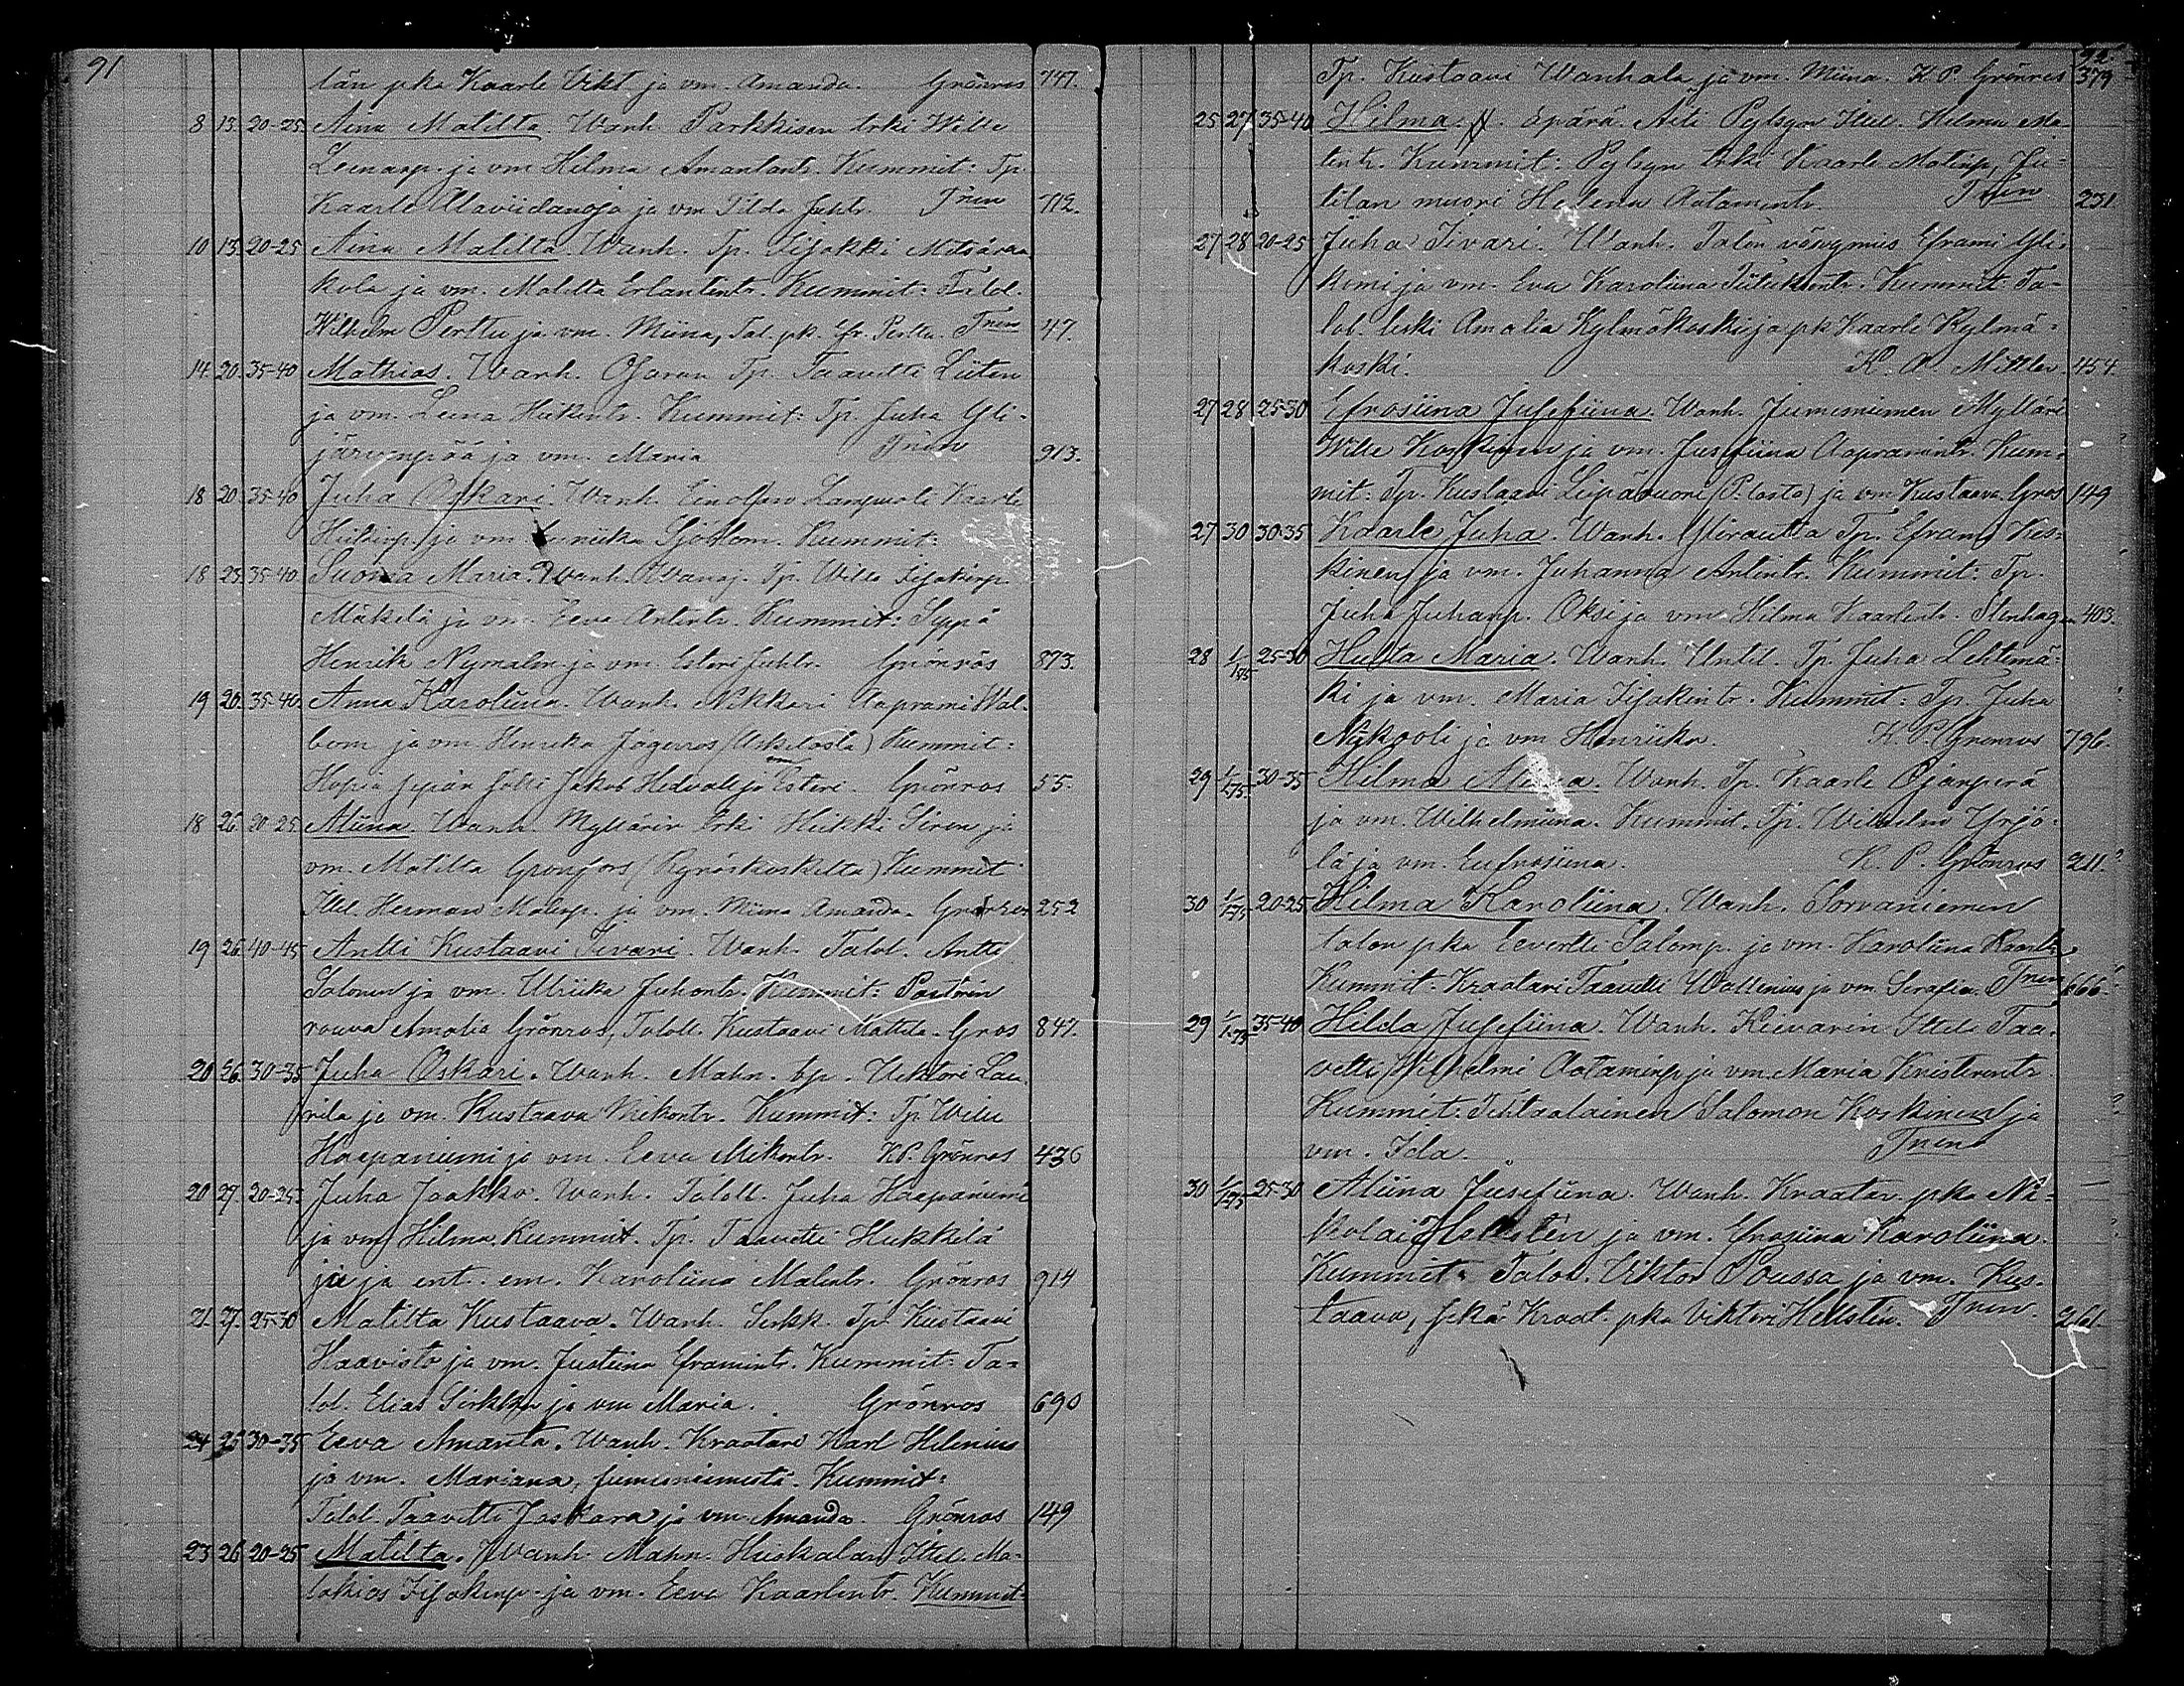 91
län pka Kaarle Vikt. ja vm. Amanda. Grönros 747.
8 13. 20-25 Aina Matilta. Wanh. Parkkisen trki Wille
Leenanp. ja vm Hilma Amantantr. Kummit: Tp.
Kaarle Alaviidanoja ja vm Tilda Juhtr. Tnen 712.
10 13. 20-25 Aina Matilta. Wanh. Tp. Iisakki Metsäraa
kola ja vm. Matilta Erlantintr. Kummit: Talol.
Wilhelm Perttu ja vm. Miina, Tal. pk. Efr. Perttu. Tnen 47.
14. 20. 35-40 Mathias. Wanh. Osaran Tp. Taavetti Liiten
ja vm. Leena Heikintr. Kummit: Tp. Juha Yli-
järvenpää ja vm. Maria Tnen 913.
18 20. 35-40 Juha Oskari. Wanh. Lampuoti Kaarle
Heikinp. ja vm Sjöblom. Kummit:
18 25. 35-40 Suoma Maria. Wanh. Tp. Wille Iisakinp.
Mäkelä ja vm. Eeva Antintr. Kummit: Seppä
Henrik Nymalen ja vm. Esteri Juhtr. Grönros 873.
19 20. 35-40. Anna Karoliina. Wanh. Nikkari Aaprami Wal-
bom ja vm. Henrika Jägerros Kummit:
Hopia sepän sälli Jakob Hedvall ja vm Esteri. Grönros 55.
18 26. 20-25 Miina. Wanh. Myllärin trki Heikki Siren ja
vm. Matilta Gronfors (Kyröskoskelta) Kummit
Itsel. Herman Matinp. ja vm. Miina Amanda. Grönros 252
19 26. 40-45 Antti Kustaavi Iivari. Wanh. Talol. Antti
Salonen ja vm. Ulriika Juhontr. Kummit: Pastorin
rouva Amalia Grönros, Taloll. Kustaavi Mattila. Gros 847.
20 26. 30-35 Juha Oskari. Wanh. Mahn. tp. Viktori Lau-
rila ja vm. Kustaava Mikontr. Kummit: Tp. Wille
Haapaniemi ja vm. Eeva Mikontr. K.P. Grönros 436
20 27. 20-25. Juha Jaakko. Wanh. Taloll. Juha Haapaniemi
ja vm Hilma. Kummit. Tp. Taavetti Hukkila
ja ent. em. Karoliina Matintr. Grönros 914
21. 27. 25-30 Matilta Kustaava. Wanh. Sirkk. Tp. Kustaavi
Haavisto ja vm. Justiina Eframintr. Kummit: Ta-
lol. Elias Sirkka ja vm Maria. Grönros 690
24 25 30-35 Eeva Amanta. Wanh. Kraatari Karl Helenius
ja vm. Mariana, Jumesniemestä. Kummit:
Talol. Taavetti Jaskara ja vm Amanda. Grönros 149
23 26 20-25 Matilta. Wanh. Mahn. Heiskalan Itsel. Ma-
lakias Iisakinp. ja vm. Eeva Kaarlentr. Kummit:
92
Tp. Kustaavi Wanhala ja vm. Miina. K.P. Grönros 379
25 27 35-40 Hilma. äpärä. Äiti Pylsyn Itsel. Hilma Ma-
tintr. Kummit: Pylsyn trki Kaarle Matinp,
tilan muori Helena Aatamintr. Tnen 231
27 28 20-25 Juha Iivari. Wanh. Talon väwymies Eframi Yli-
komi ja vm. Eva Karoliina Kummit: Ta-
lol. leski Amalia Kylmäkoski ja pk Kaarle Kylmä-
koski. K. A. Mittler. 454.
27 28 25-30 Efrosiina Jusefiina. Wanh. Jumesniemen Mylläri
Wille Koskinen ja vm. Jusefiina Aapramintr. Kum-
mit: Tp. Kustaavi Liepävuori ja vm Kustaava. Gros 149
27 30 30-35 Kaarle Juha. Wanh. Yliraution Tp. Efram Kes-
kinen ja vm. Juhanna Antintr. Kummit: Tp.
Juha Juhanp. Oksi ja vm Hilma Kaarlentr. Stenhagen 403.
28 1/1 75 25-30 Hulta Maria. Wanh. Tp. Juha Lehtimä-
ki ja vm. Maria Iisakintr. Kummit: Tp. Juha
Nykooli ja vm Henriika. K.P. Grönros 796.
29 1/1 75. 30-35 Hilma Wanh. Tp. Kaarle Ojanperä
ja vm. Wilhelmiina. Kummit. Tp. Wilhelm Yrjö-
lä ja vm. Eufrosiina. K. P. Grönros 211.
30 1/1 75 20-25 Hilma Karoliina. Wanh. Sorvaniemen
talon pka Eevertti Salomp. ja vm. Karoliina Kaarletr
Kummit: Kraatari Taavetti Wallenius ja vm. Serafia. Tnen 666.
29 1/1 75 35-40 Hilda Jusefiina. Wanh. Kievarin Itsel Taa-
vetti Wilhelmi Aataminp ja vm. Maria Kristerentr
Kummit: Tehtaalainen Salomon Koskinen ja
vm. Ida. Tnen
30 1/1 75 25-30 Miina Jusefiina. Wanh. Kraatar. pka Ni- —
kolai Hellsten ja vm. Efrosiina Karoliina.
Kummit: Talol. Viktor Poussa ja vm. Kus-
taava, Kraat. pka Viktori Hellstén. Tnen. 261